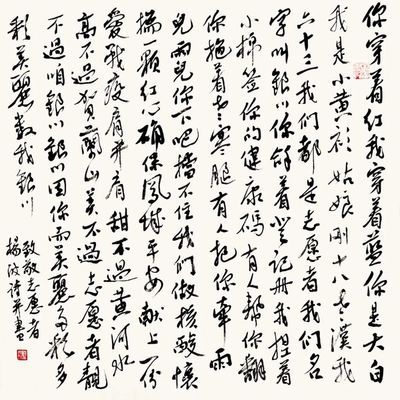 你穿着红我穿着蓝你是大白
我是小黄衫姑娘刚十八老漢我
六十三我们都是志愿者我们名
字叫銀川你着登记册我捏着
小棉签你的健康码有人帮你翻
你拖着老寒腿有人把你牵雨
儿雨儿你下吧擋不住我们做核酸懷
揣一颗红心确保凤城平安献上一份
愛战疫肩并肩甜不过黄河水
高不过贺蘭山美不过志愿者靓
不过咱銀川銀川因你而美麗多彩多
彩美麗数我銀川
致敬志愿者
杨波诗并書